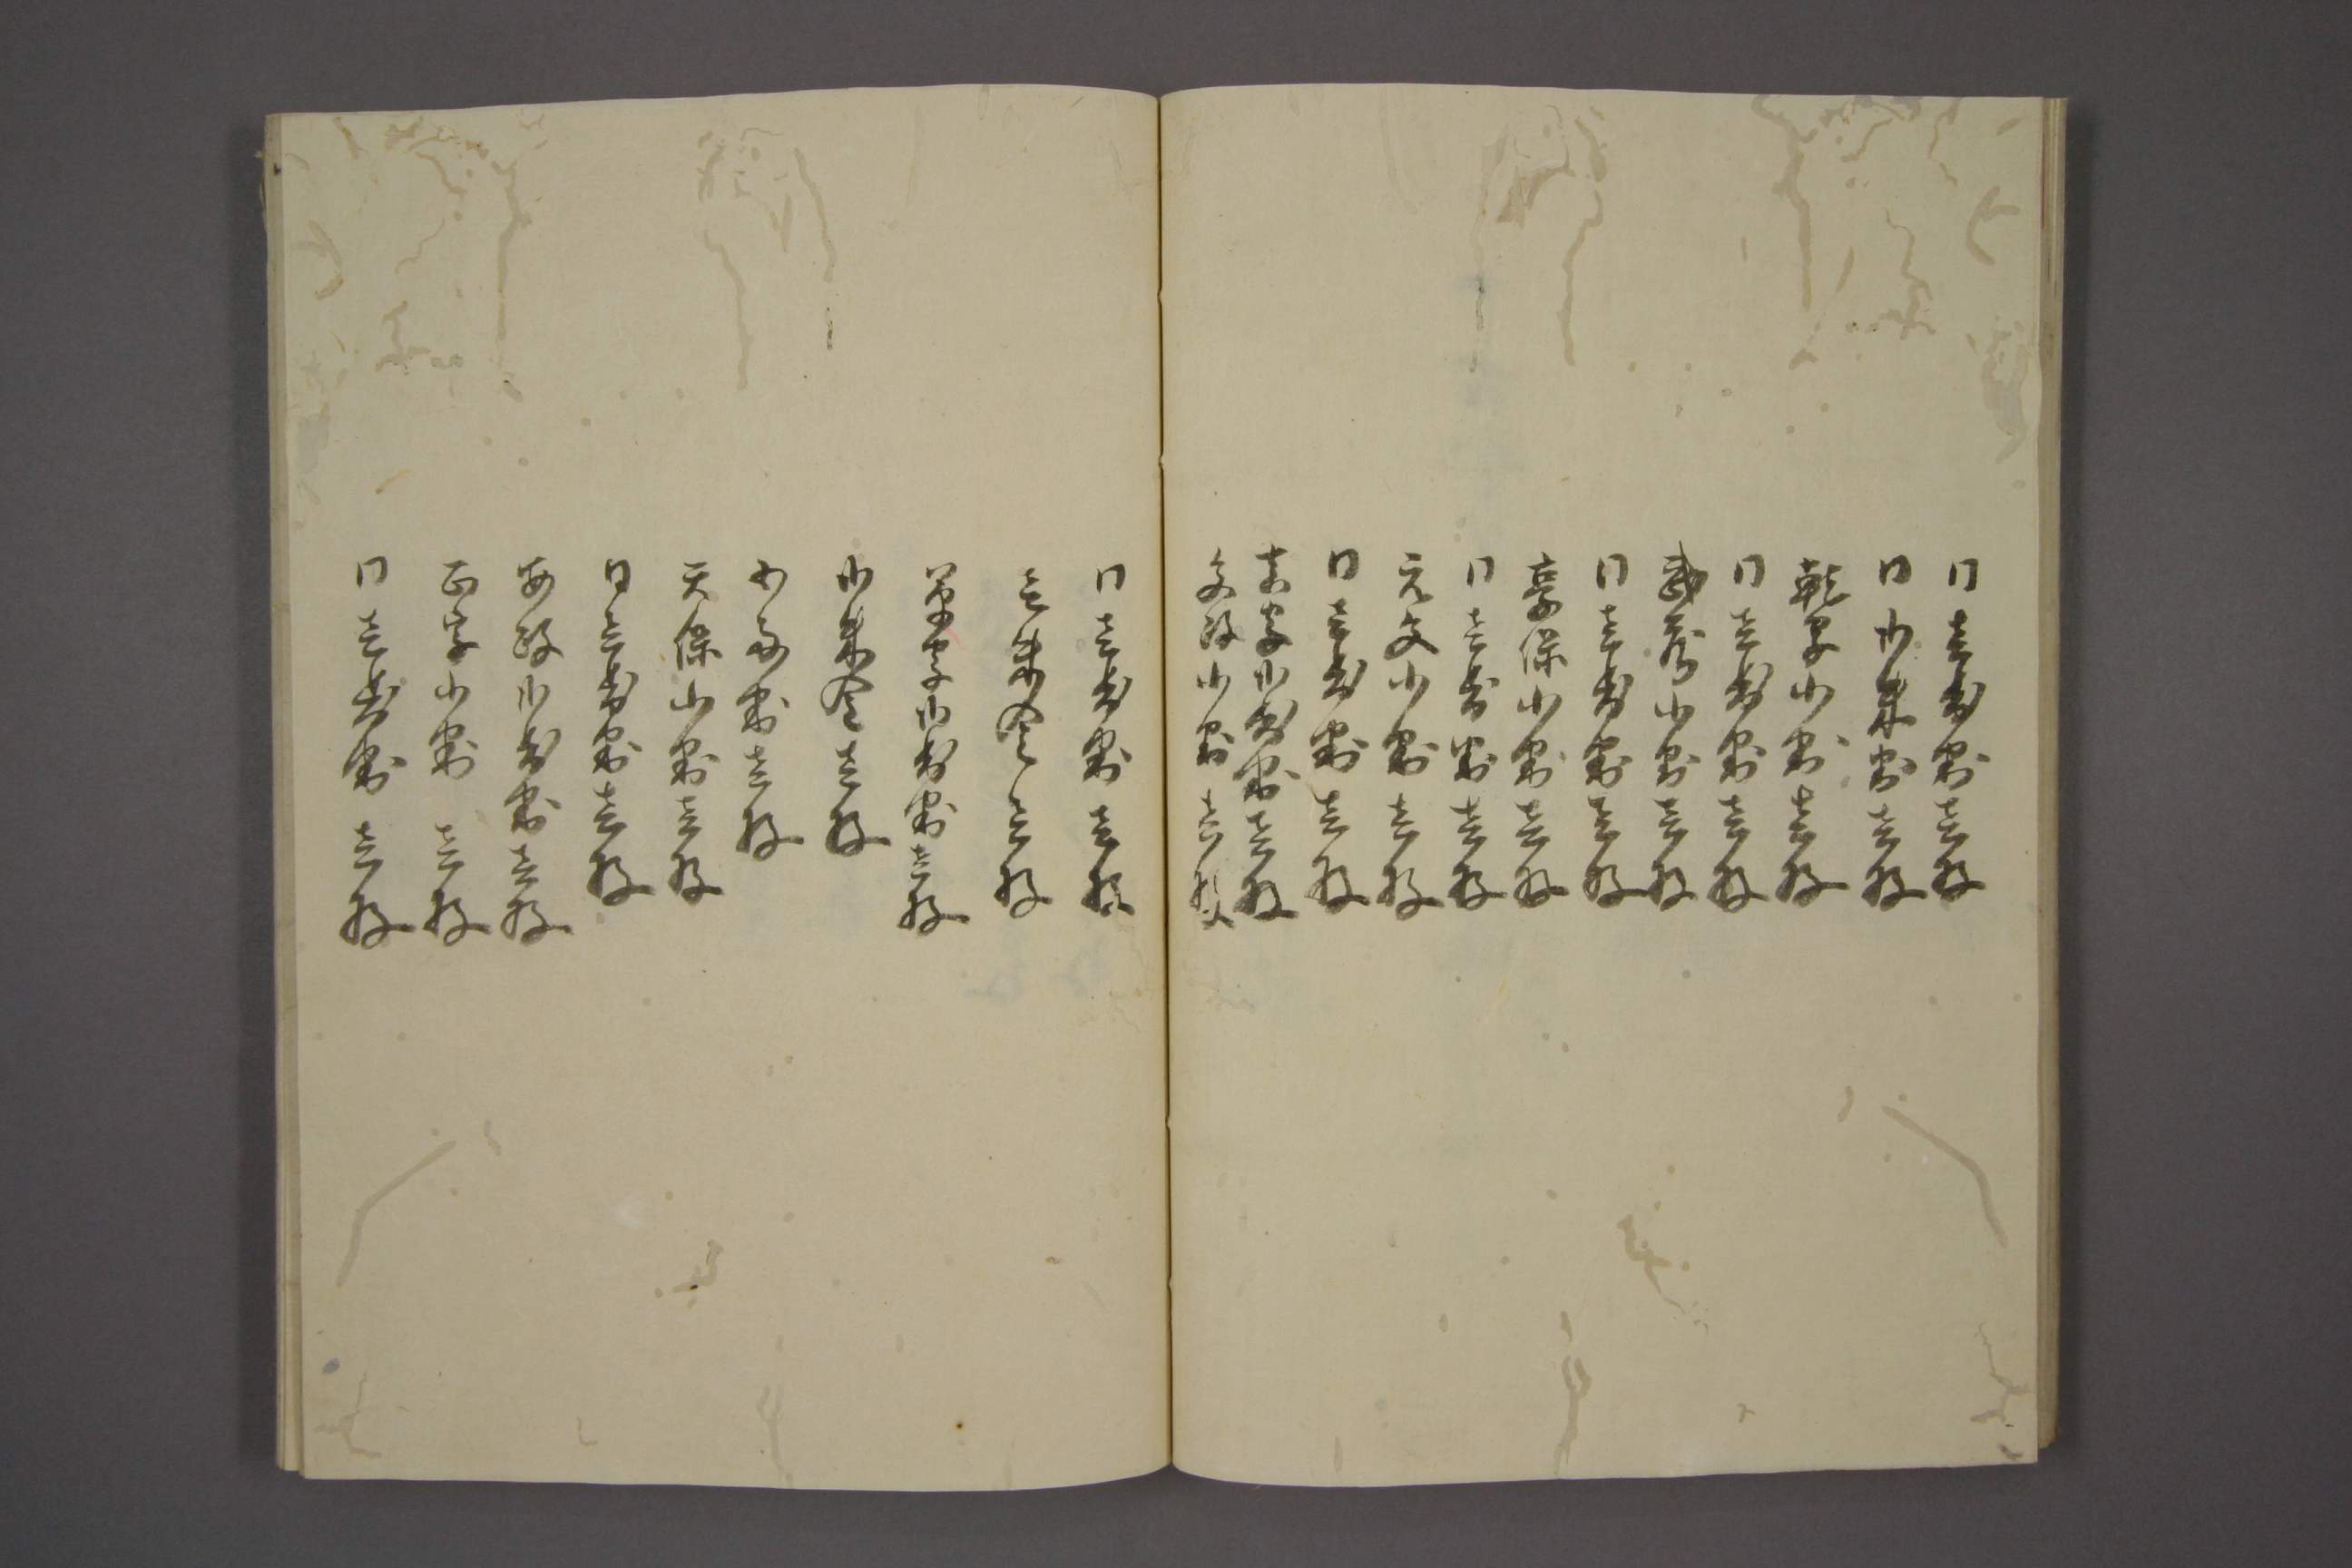 同壱歩判壱枚
同弐朱判壱枚
乾字小判壱枚
同壱歩判壱枚
武蔵小判壱枚
同壱歩判壱枚
享保小判壱枚
同壱歩判壱枚
元文小判壱枚
同壱歩判壱枚
真字弐歩判壱枚
文政小判壱枚
同壱歩判壱枚
壱朱金壱枚
草字弐歩判壱枚
弐朱金壱枚
五両判壱枚
天保小判壱枚
同壱歩判壱枚
安政弐歩判壱枚
正字小判壱枚
同壱歩判壱枚